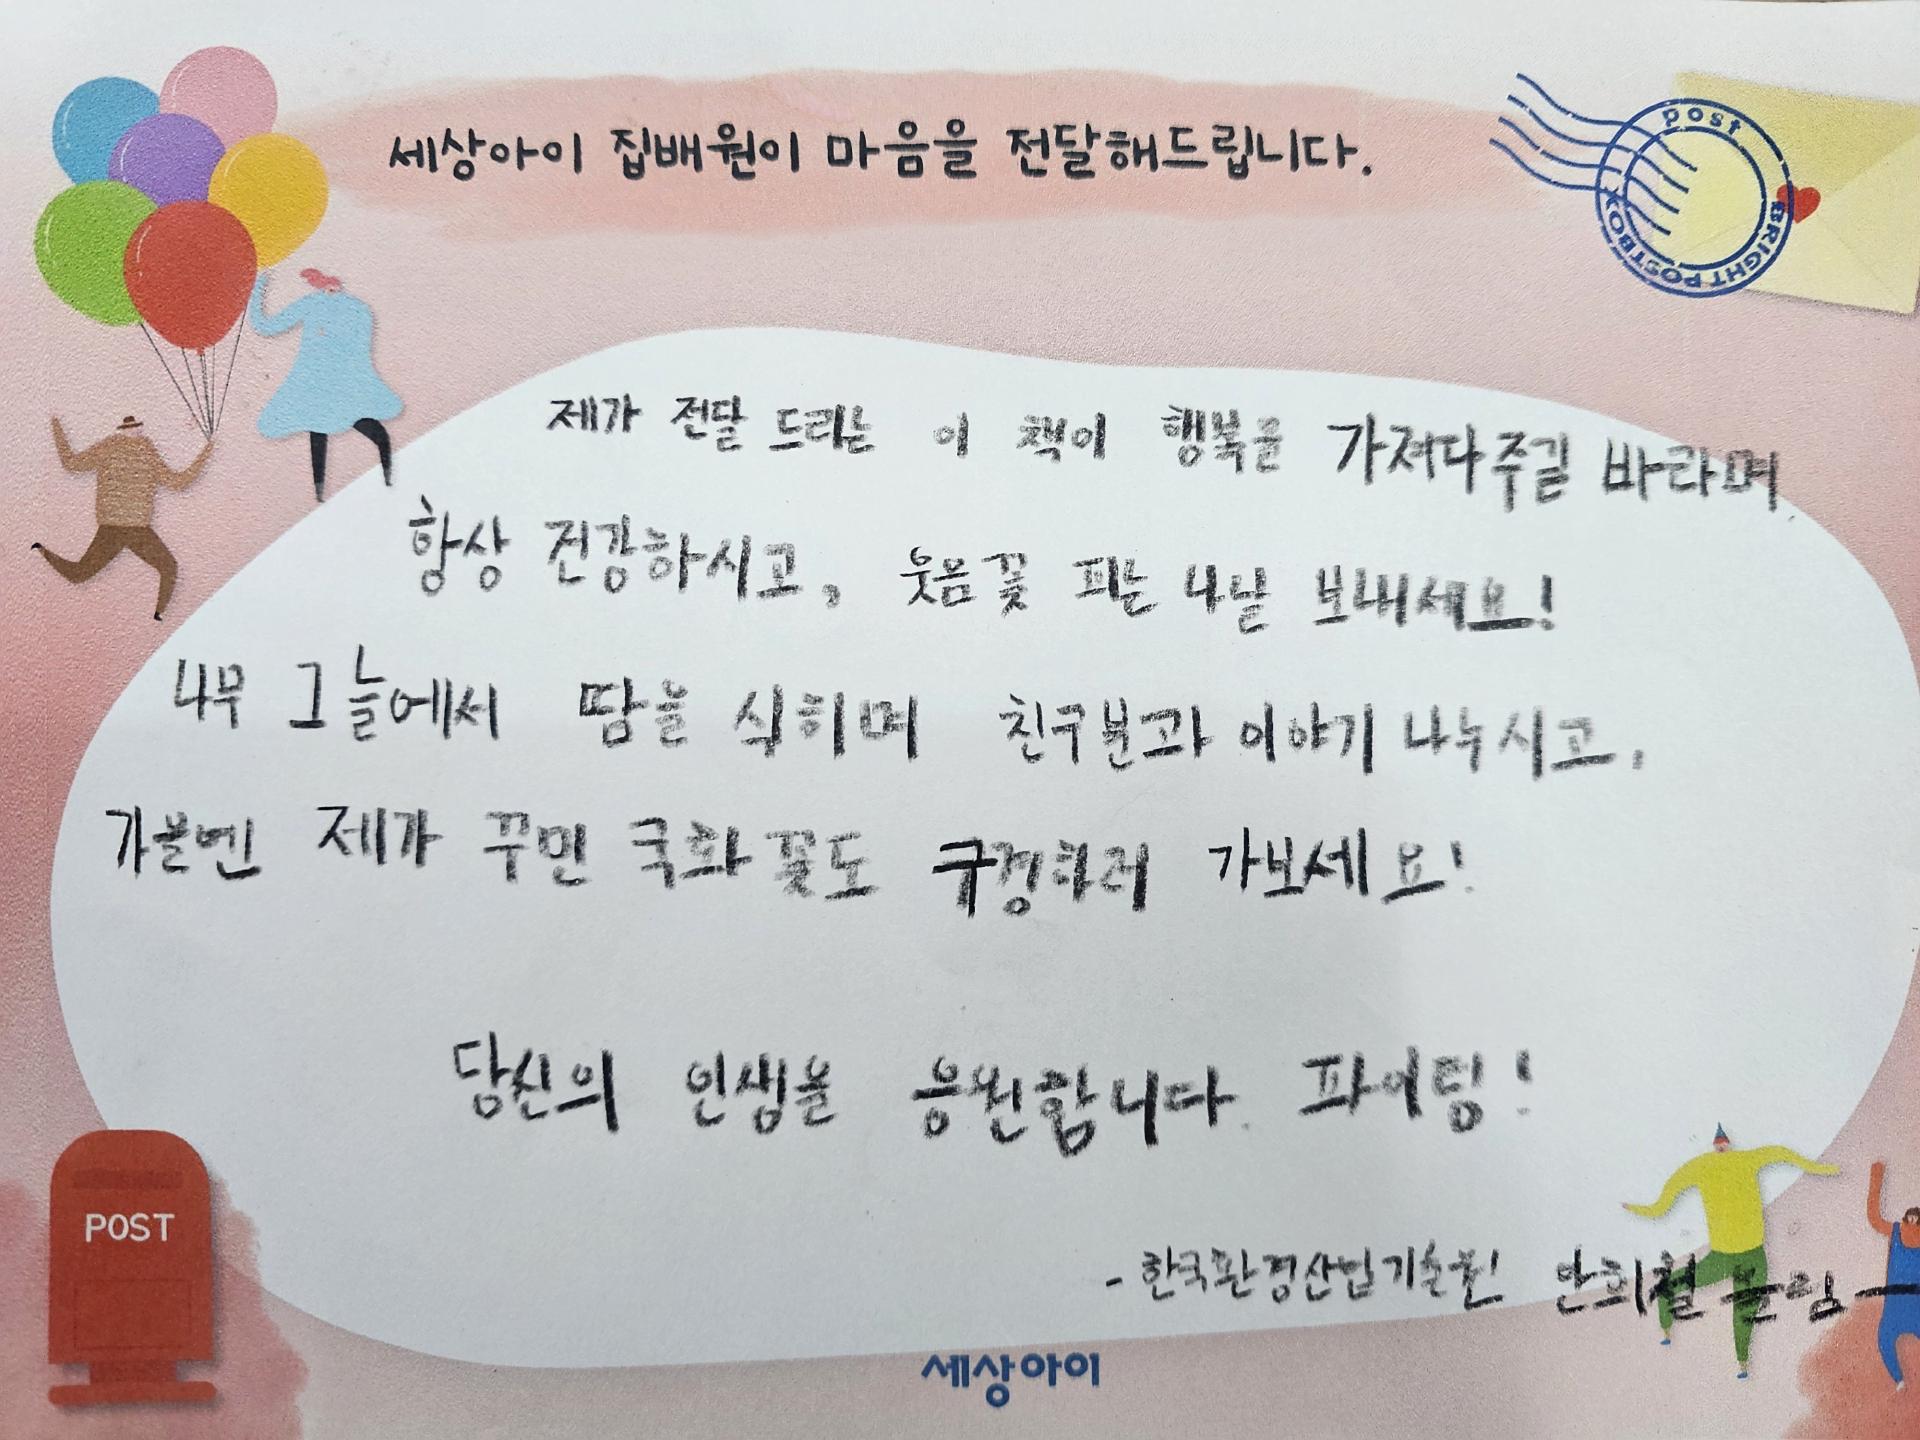 세상아이 집배원이 마음을 전달해드립니다.
post
BRIGHT POSTBOX
제가 전달 드리는 이 책이 행복을 가져다주길 바라며,
항상 건강하시고, 웃음꽃 피는 나날 보내세요!
나무 그늘에서 땀을 식히며 친구분과 이야기 나누시고,
가을엔 제가 꾸민 국화꽃도 구경하러 가보세요!
당신의 인생을 응원합니다. 파이팅!
- 한국환경산업기술원 안희철 올림 -
POST
세상아이